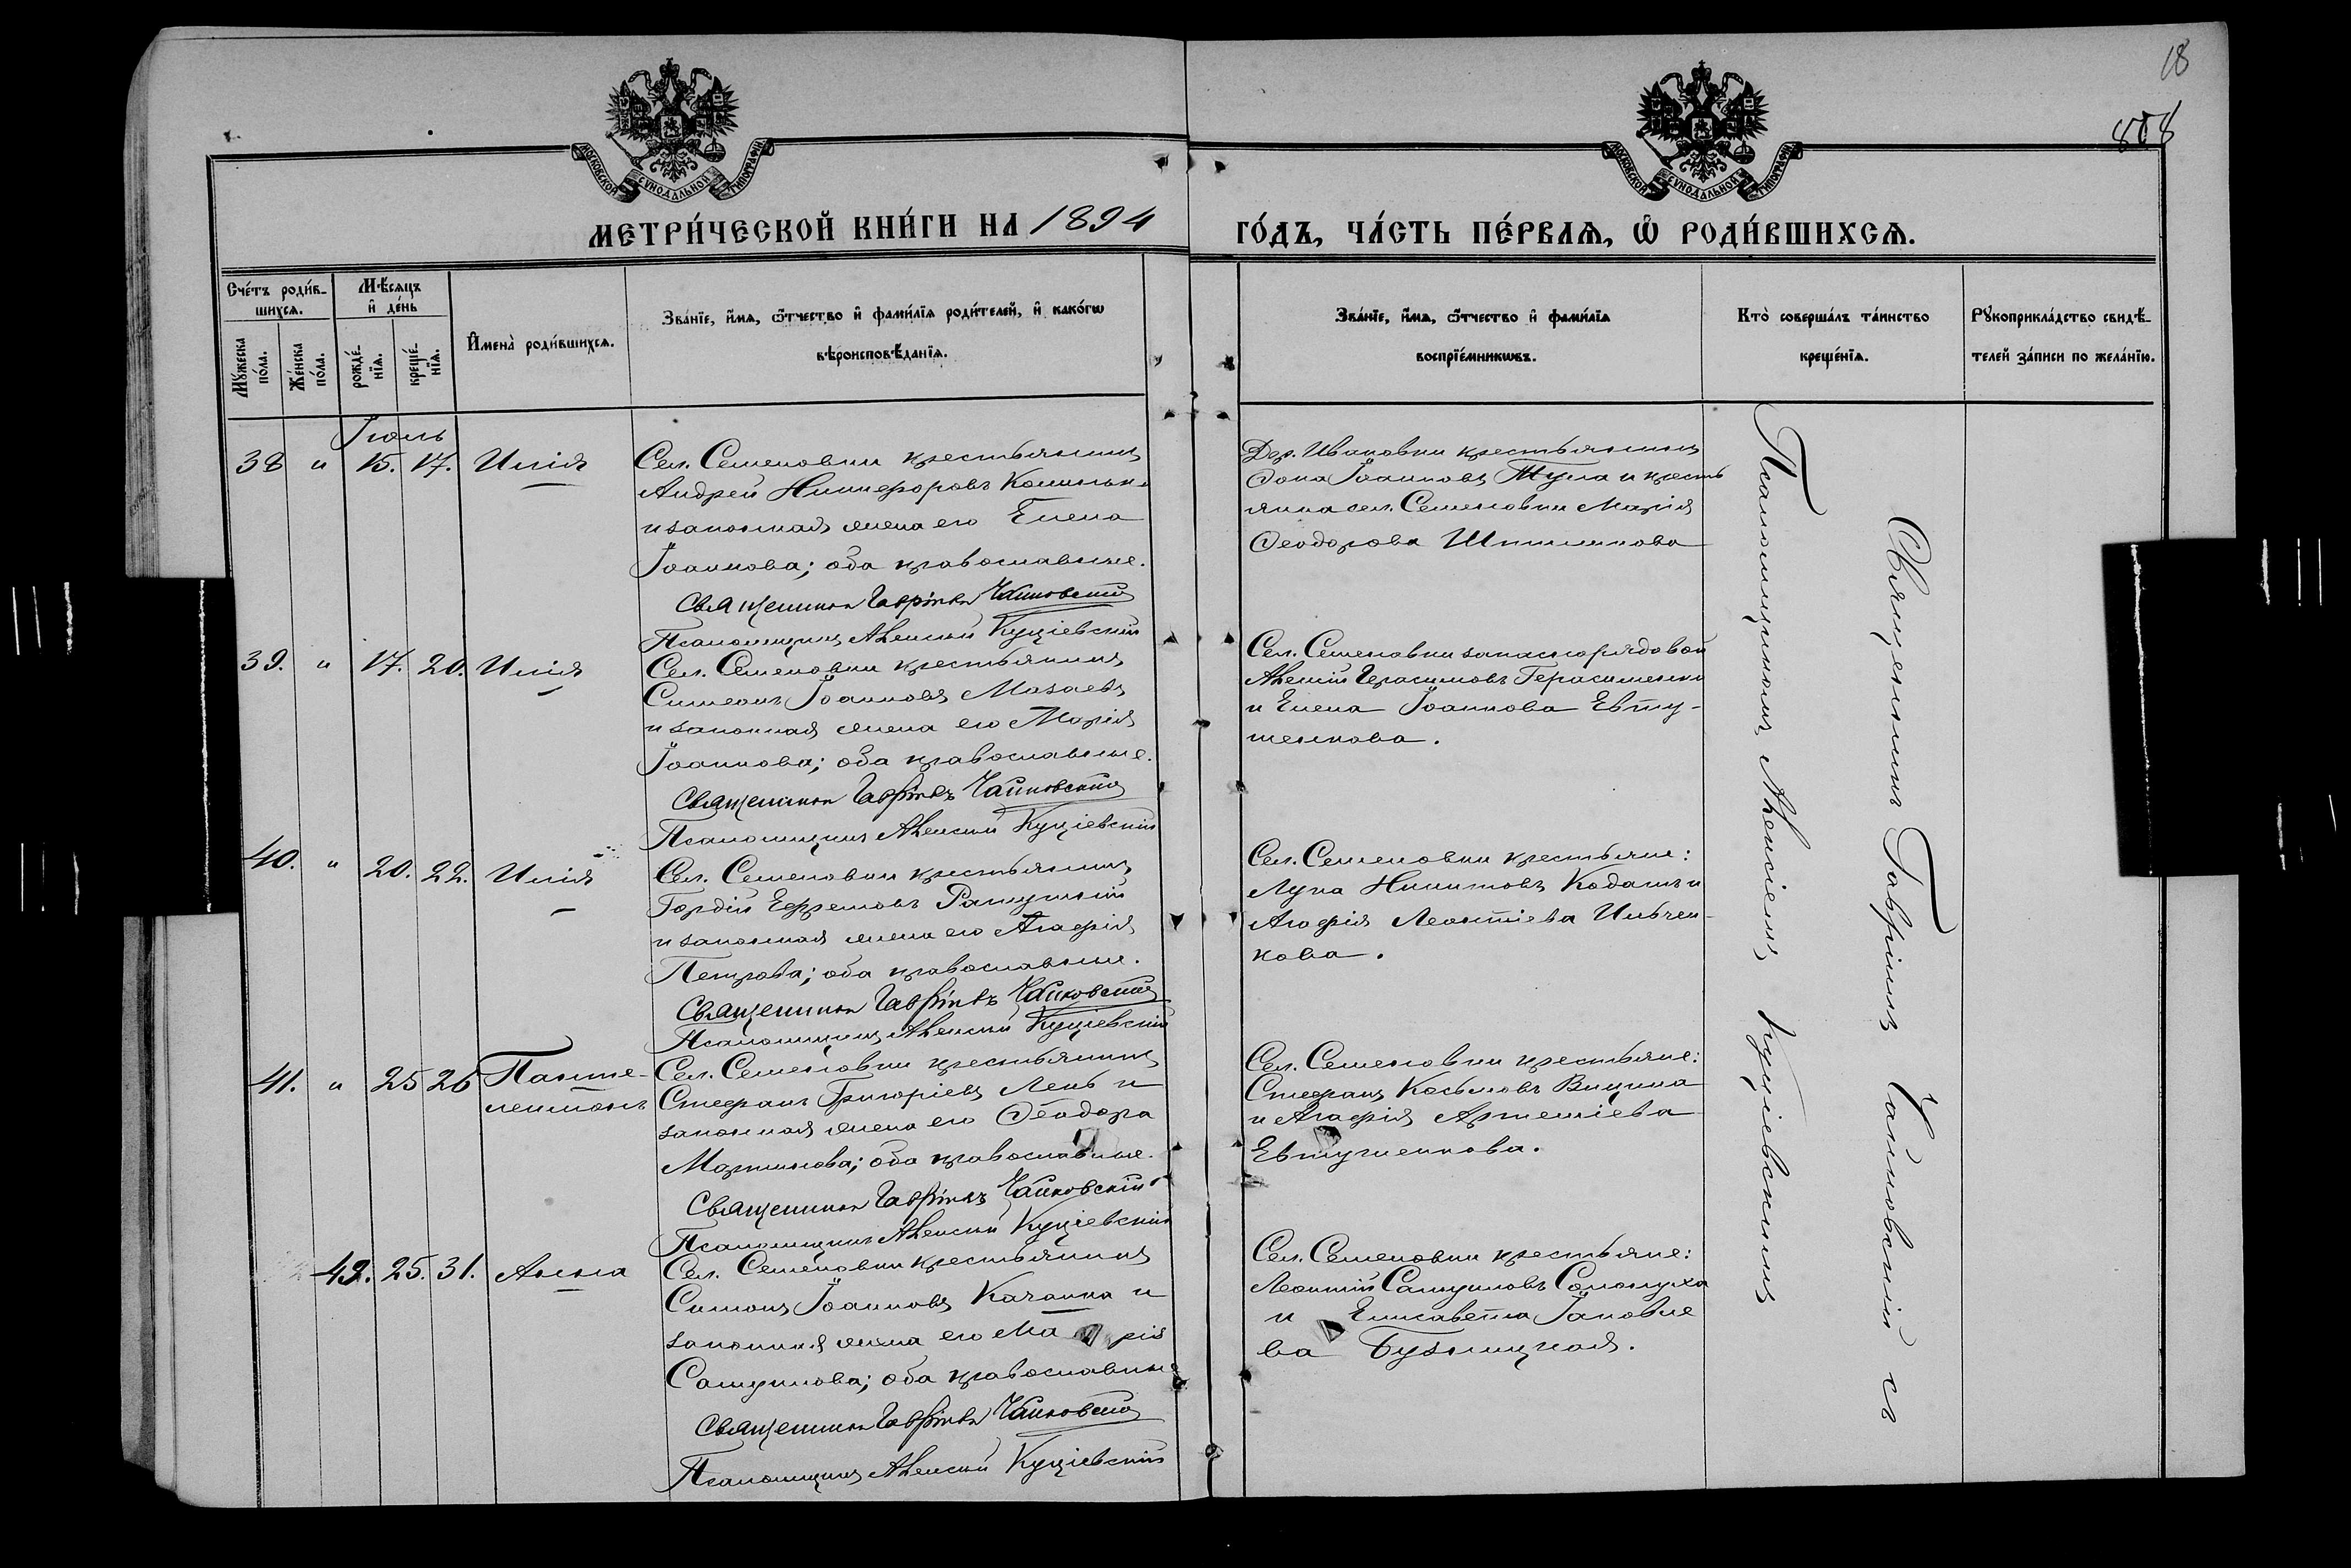 18
808
МОСКОВСКОЙ СѴНОДАЛЬНОЙ ТИПОГРАФІИ
МОСКОВСКОЙ СѴНОДАЛЬНОЙ ТИПОГРАФІИ
МЕТРИ́ЧЕСКОЙ КНИ́ГИ НА 1894 ГО́ДЪ, ЧА́СТЬ ПЕ́РВАѦ, Ѡ҆ РОДИ́ВШИХСѦ.
Сче́тъ роди́в-
шихсѧ.
Мꙋ́жеска по́ла.
Же́нска по́ла.
Мѣ́сѧцъ
и҆ де́нь
рожде́-
нїѧ.
креще́-
нїѧ.
И҆мена̀ роди́вшихсѧ.
Зва́нїе, и҆́мѧ, ѻ҆́тчество и҆ фами́лїѧ роди́телей, и҆ како́гѡ
вѣроисповѣ́данїѧ.
Зва́нїе, и҆́мѧ, ѻ҆́тчество и҆ фами́лїѧ
воспрїе́мникѡвъ.
Кто̀ соверша́лъ та́инство
креще́нїѧ.
Рꙋкоприкла́дство свидѣ́-
телей за́писи по жела́нїю.
Іюль
38 " 15. 17. Илія
Сел. Семеновки крестьянинъ
Андрей Никифоровъ
и законная жена его Елена
Іоаннова; оба православные.
Священникъ Гавріилъ Чайковскій
Псаломщикъ Алексій Куціевскій
Дер. Ивановки крестьянинъ
Ѳома Іоанновъ Тула и кресть
янка сел. Семеновки Марія
Ѳеодорова
39. " 17. 20. Илія
Сел. Семеновки крестьянинъ
Симеонъ Іоанновъ Мазаевъ
и законная жена его Марія
Іоаннова; оба православные.
Священникъ Гавріилъ Чайковскій
Псаломщикъ Алексій Куціевскій
Сел. Семеновки запасн. рядовой
Алексій Герасимовъ Герасименко
и Елена Іоаннова Евту-
шенкова.
40. " 20. 22. Илія
Сел. Семеновки крестьянинъ
Гордій Ефремовъ Ратушный
и законная жена его Агафія
Петрова; оба православные.
Священникъ Гавріилъ Чайковскій
Псаломщикъ Алексій Куціевскій
Сел. Семеновки крестьяне:
Лука Никитовъ Кодашъ и
Агафія Леонтіева Ильчен-
кова.
41. " 25 26 Панте-
леимонъ
Сел. Семеновки крестьянинъ
Стефанъ Григоріевъ Лень и
законная жена его Ѳеодора
Мартинова; оба православные.
Священникъ Гавріилъ Чайковскій
Псаломщикъ Алексій Куціевскій
Сел. Семеновки крестьяне:
Стефанъ Косьмовъ Вицина
и Агафія Артеміева
Евтушенкова.
42. 25. 31. Анна
Сел. Семеновки крестьянинъ
Симонъ Іоанновъ Качанка и
законная жена его Марія
Самуилова; оба православные
Священникъ Гавріилъ Чайковскій
Псаломщикъ Алексій Куціевскій
Сел. Семеновки крестьяне:
Леонтій Самуиловъ Солопуха
и Елисавета Іаковле
ва Бузницкая.
Священникъ Гавріилъ Чайковскій съ
Псаломщикомъ Алексіемъ Куціевскимъ